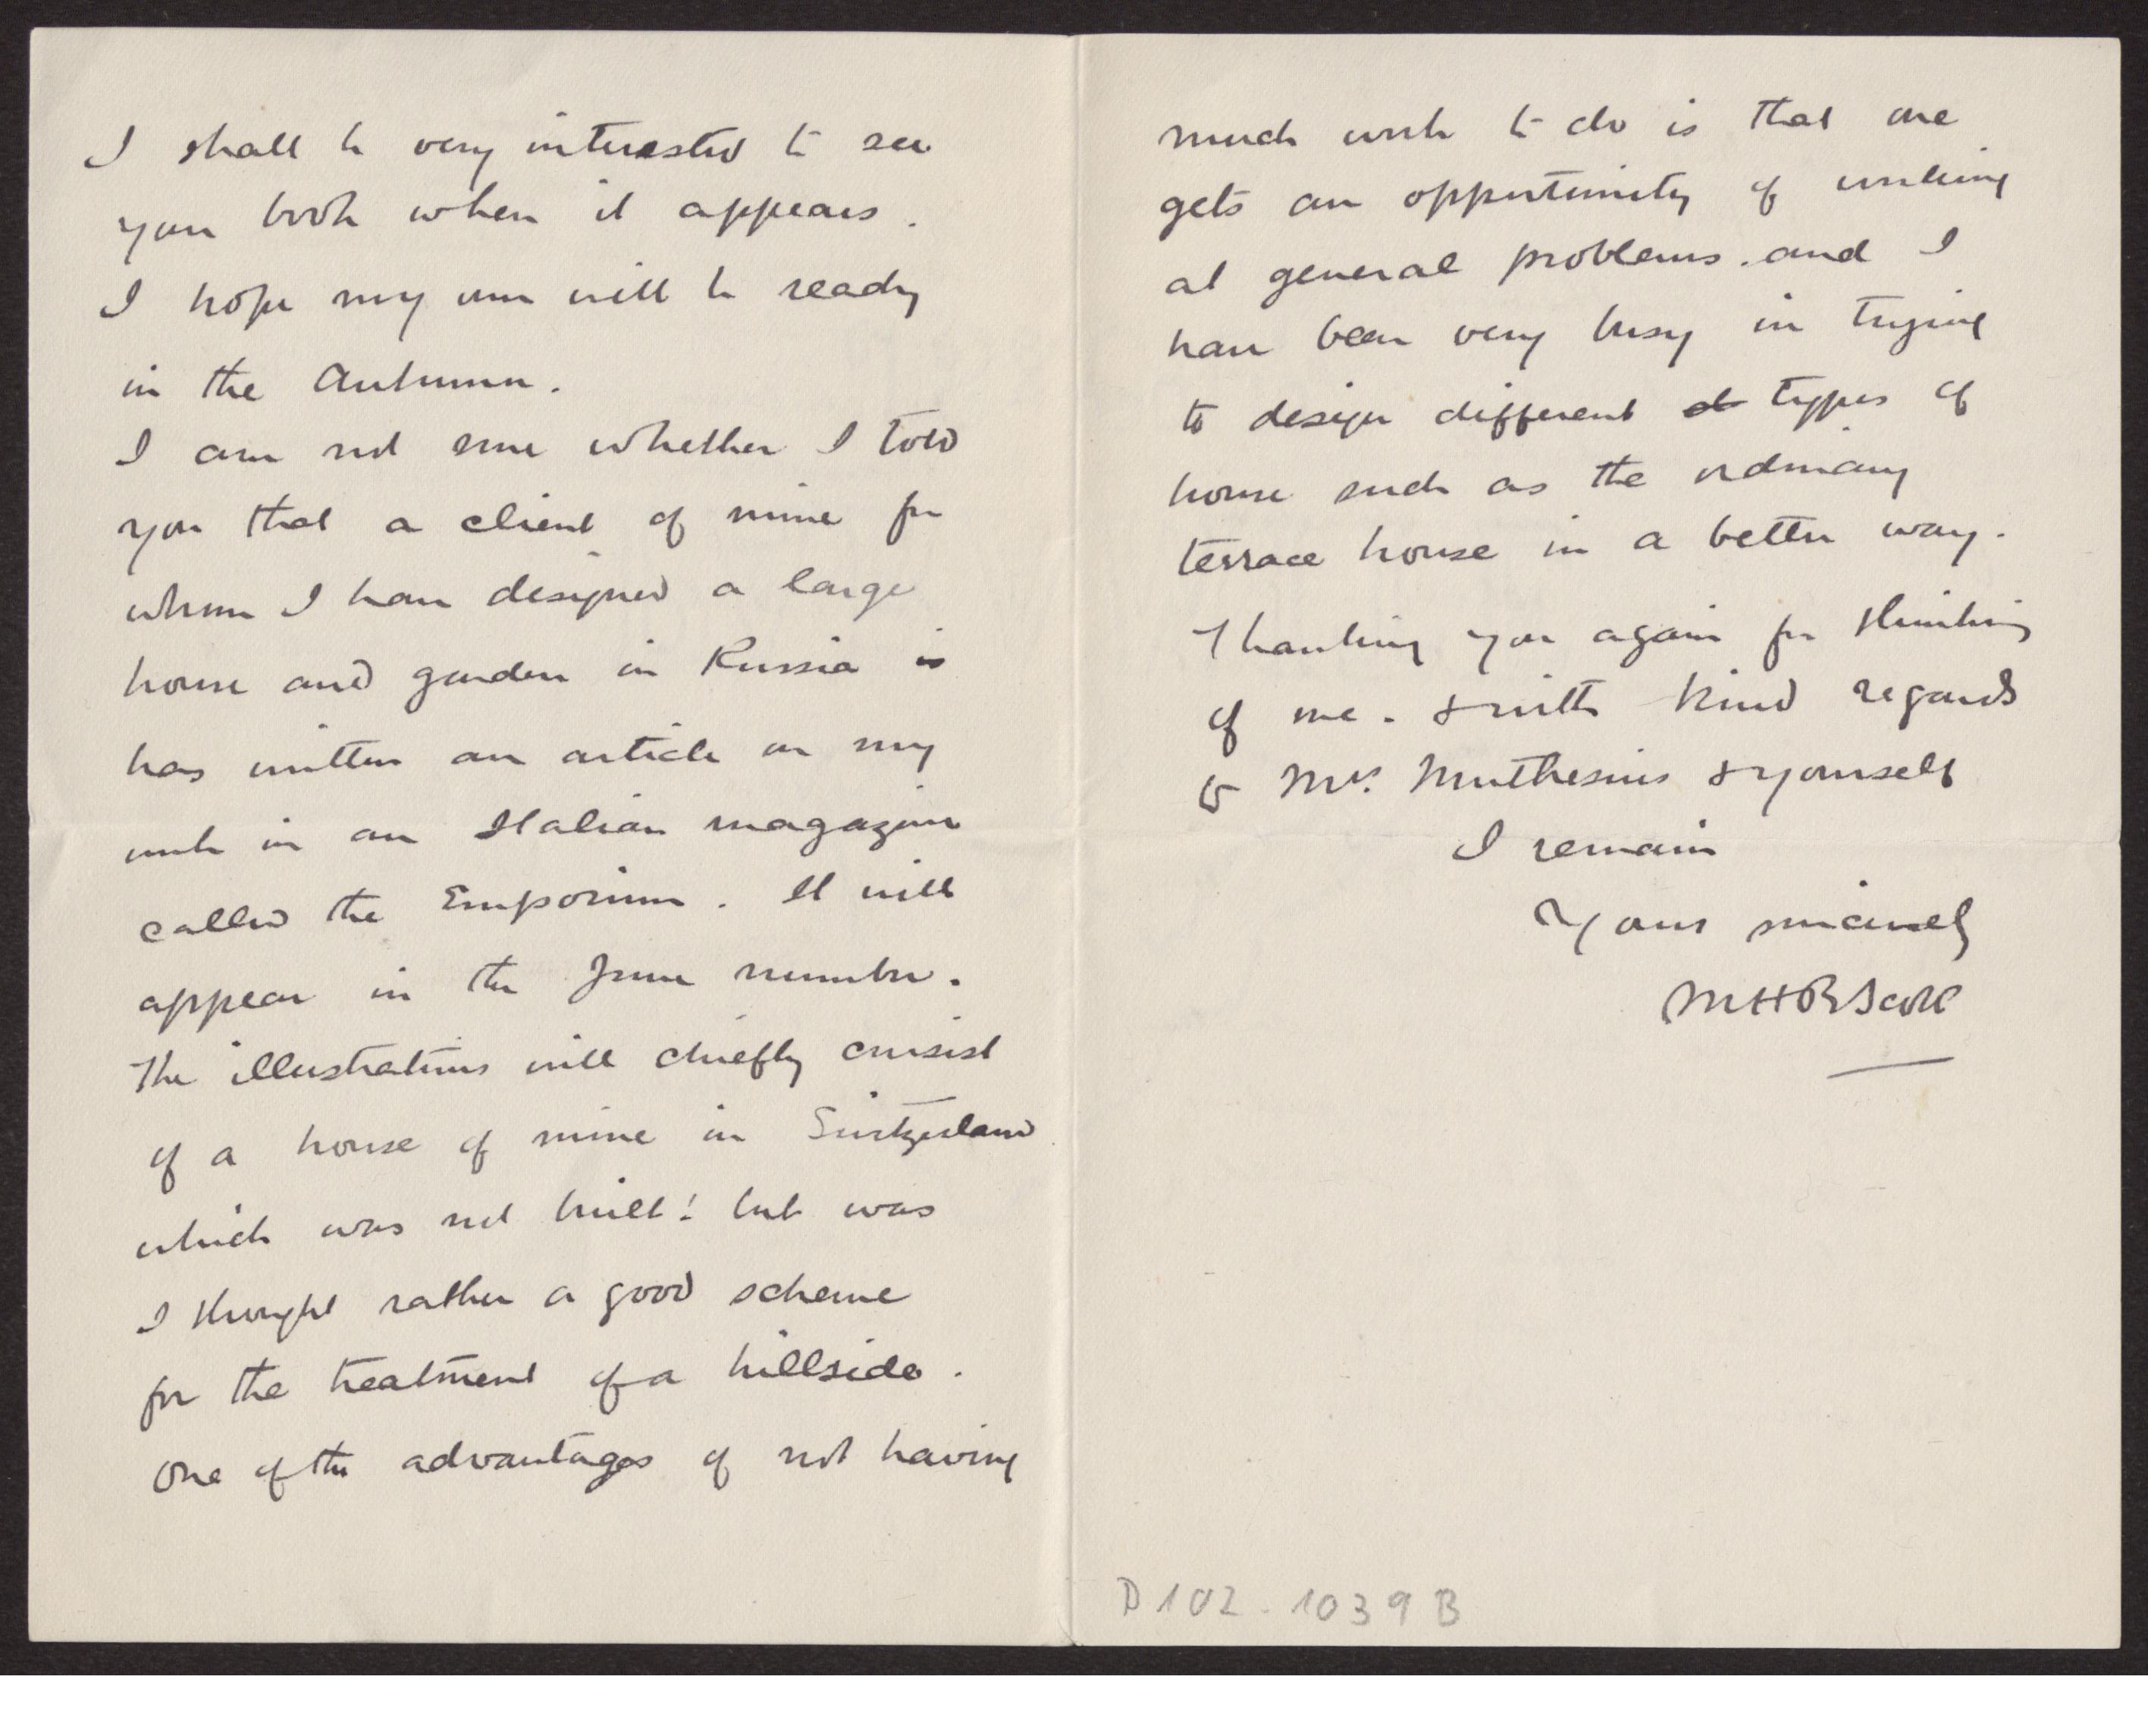 I shall be very interested to see
your book when it appears.
I hope my own will be ready
in the Autumn.
I am not sure whether I told
you that a client of mine for
whom I have designed a large
house and garden in Russia is
has written an article on my
work in an Italian magazine
called the Emporium. It will
appear in the June number.
The illustrations will chiefly consist
of a house of mine in Switzerland
which was not built! but was
I thought rather a good scheme
for the treatment of a hillside.
One of the advantages of not having
much work to do is that one
gets an opportunity of working
at general problems. and I
have been very busy in trying
to design different st types of
house such as the ordinary
terrace house in a better way.
Thanking you again for thinking
of me. & with kind regards
to Mrs. Muthesius & yourself
I remain
Yours sincerely
MHBScott
D 102 - 1039 B